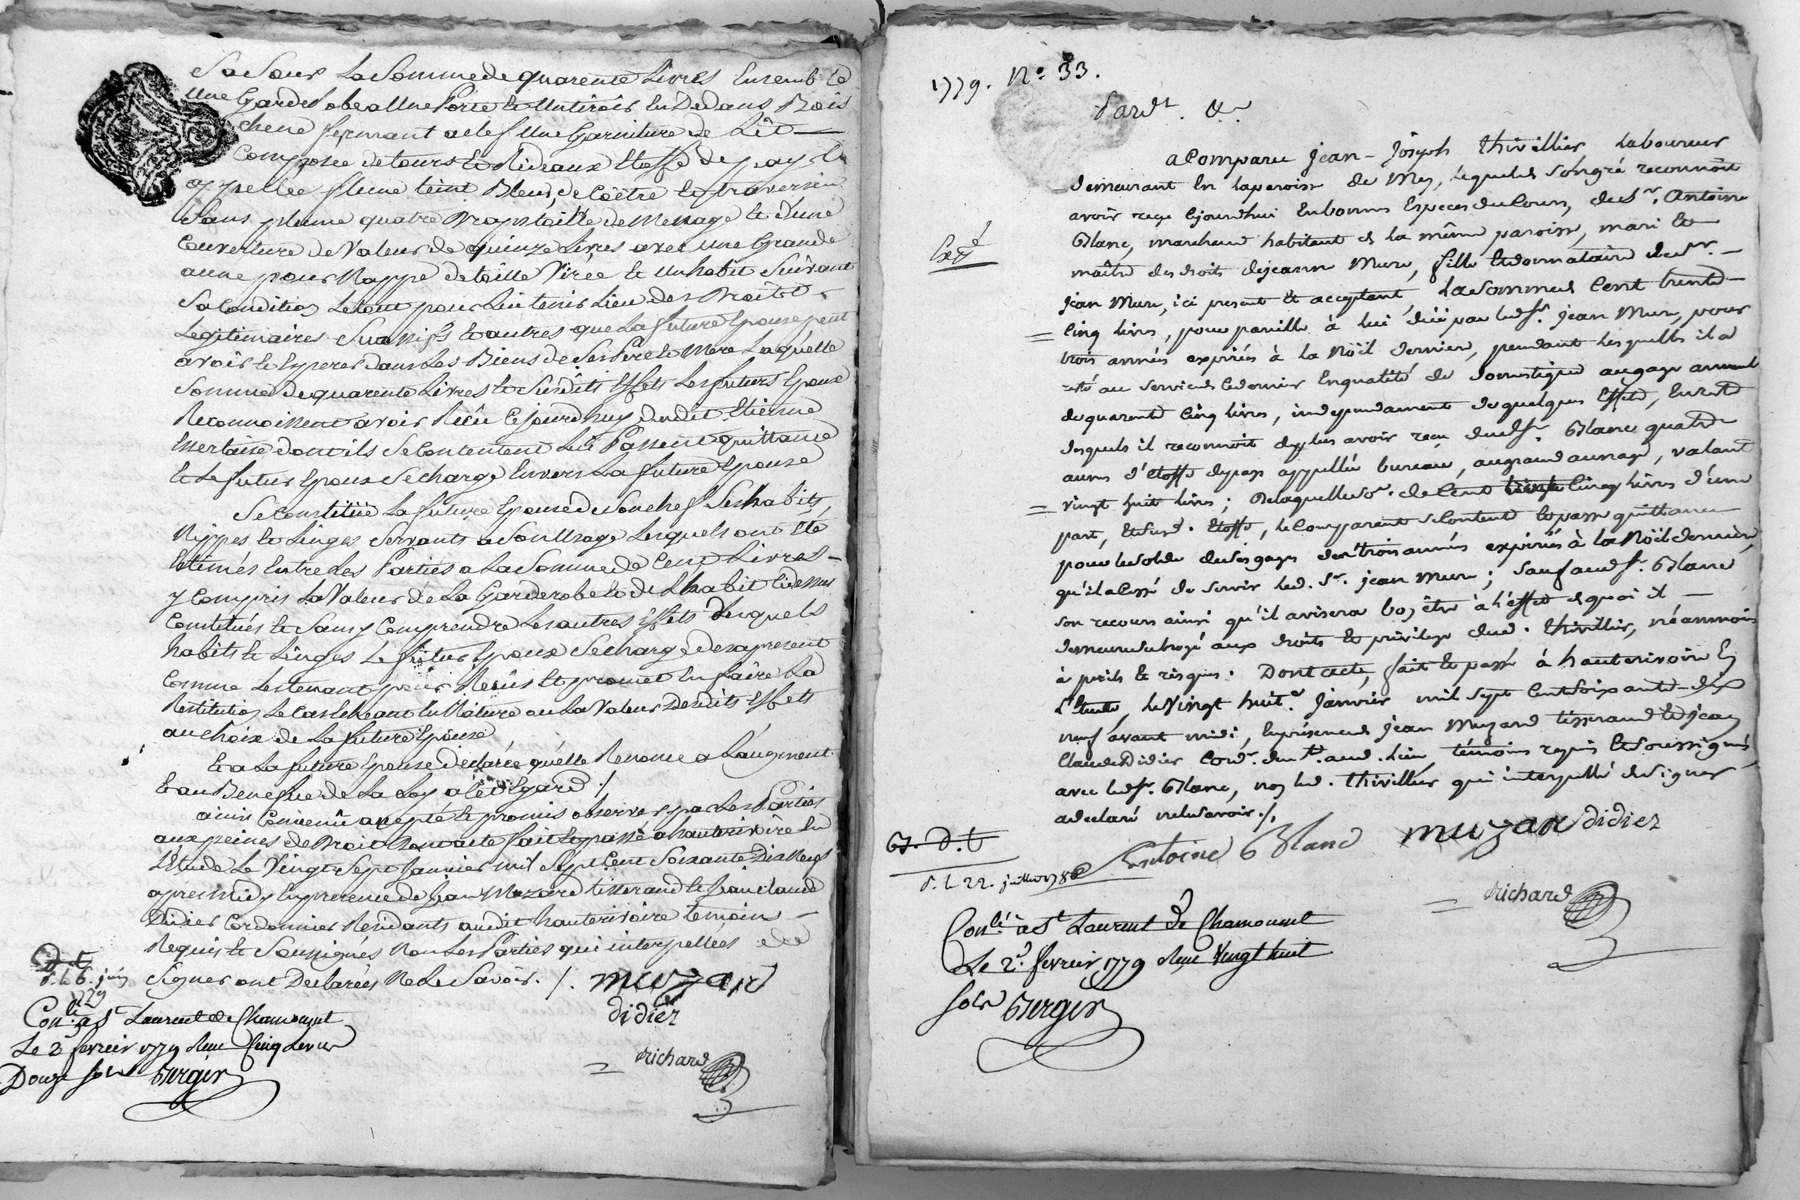 Sa Soeur La Somme de quarente Livres Ensemble
Une Garde Robe a Une Porte et Un tiroir En Dedans Bois
chene fermant a clef Une Garniture de Lit
Composée de tours et Rideaux Etoffe de pays
appellée fleuret teint Bleu, de Coëtre et traversin
Sans plume quatre Draps toille de Menage et d'une
Couverture de Valeur de quinze Livres avec Une Grande
aune pour Nappe de toille Virée et Un habit Suivant
Sa Condition Le tout pour Lui tenir Lieu des Droits
Legitimaires Successifs et autres que La future Epouse peut
avoir et Esperer dans Les Biens de Ses Pere et Mere Laquelle
Somme de quarente Livres et Susdits Effets Les futurs Epoux
Reconnoissent avoir Reçu Cejourd'huy dudit Etienne
dont ils Se Contentent Lui Passent quittance
Et Le futur Epoux Se charge Envers La future Epouse
Se Constitüe La future Epouse de Son chef Ses habits,
Nippes et Linges Servants a Son Usage Lesquels ont Eté
Estimés Entre Les Parties a La Somme de Cent Livres
y Compris La Valeur de La Garderobe et de L'habit Cidessus
Constitués et Sans y Comprendre Les autres Effets Desquels
habits et Linges Le futur Epoux Se charge des a present
Comme Les tenant pour Reçus Et promet En faire La
Restitution Le Cas Echeant En Nature ou La Valeur Desdits Effets
au choix de La future Epouse
Et a La future Epouse Declarée qu'elle Renonce a L'augment
Et au Benefice de La Loy a cet Egard ./.
ainsi Convenû accepté et promis observer par Les Parties
aux peines de Droit Dont acte fait et passé a hauterivoire En
L'Etude Le Vingt Sept Janvier mil Sept Cent Soixante Dix Neuf
apres midy En presence de Jean Mozard tisserand et Jean Claude
Didier Cordonnier Residants audit hauterivoire temoins
Requis et Soussignés Non Les Parties qui interpellées de
Signer ont Declarées Ne Le Savoir ./. muzard
didier
Con.lé à St Laurent de Chamousset
Le 2 fevrier 1779 Reçu Cinq Livres
Douze Sols Berger
richard
1779. N.° 33.
Pard.t &.a
a Comparu Jean-Joseph thivillier Laboureur
demeurant En La paroisse de Mey, Lequel de Son gré reconnoit
avoir reçu Cejourdhui En bonnes Especes du Cours, du Sr. Antoine
Blanc, marchand habitant de la même paroisse, mari et
maître des droits de jeanne Mure, fille Et donnataire du Sr.
jean Mure, ici present et acceptant, La Somme de Cent trente
Cinq livres, pour pareille à lui düe par led. Sr. jean Mure, pour
trois années expirées à la Nöel derniere, pendant lesquelles il a
resté au Service de Ce dernier En qualité de domestique au gage annuel
de quarente Cinq livres, independament de quelques Effets, En reste
desquels il reconnoit de plus avoir reçu dud. Sr. Blanc quatre
aunes d'étoffe de pays appellée bureau, au grand aunage, valant
vingt huit livres; De laquelle So.e de Cent trente Cinq livres d'une
part, et susd. Etoffe, le Comparant Se Contente et passe quittance
pour le Solde de Ses gages des trois années expirées à la Nöel derniere,
qu'il a Cessé de Servir led. Sr. jean Mure; Sauf aud. Sr. Blanc
Son recours ainsi qu'il avisera bon être à l'effet de quoi il
demeure Subrogé aux droits et privilege dud. thivillier, néanmoins
à perils et risques. Dont acte, fait et passé à hauterivoire En
l'Etude, le Vingt huit.e janvier mil Sept Cent Soixante dix
neuf avant midi, En présence de jean Muzard tisserand Et jean
Claude Didier Cord.r dem.t aud. Lieu, témoins requis Et Soussignés
avec led. Sr. Blanc, non led. thivillier qui interpellé de Signer
a déclaré ne le Savoir ./.
Antoine Blanc muzard didier
richard
D. L. 22. juillet 178
Con.lé à St Laurent de Chamousset
Le 2. fevrier 1779 Reçu Vingt huit
Sols Berger